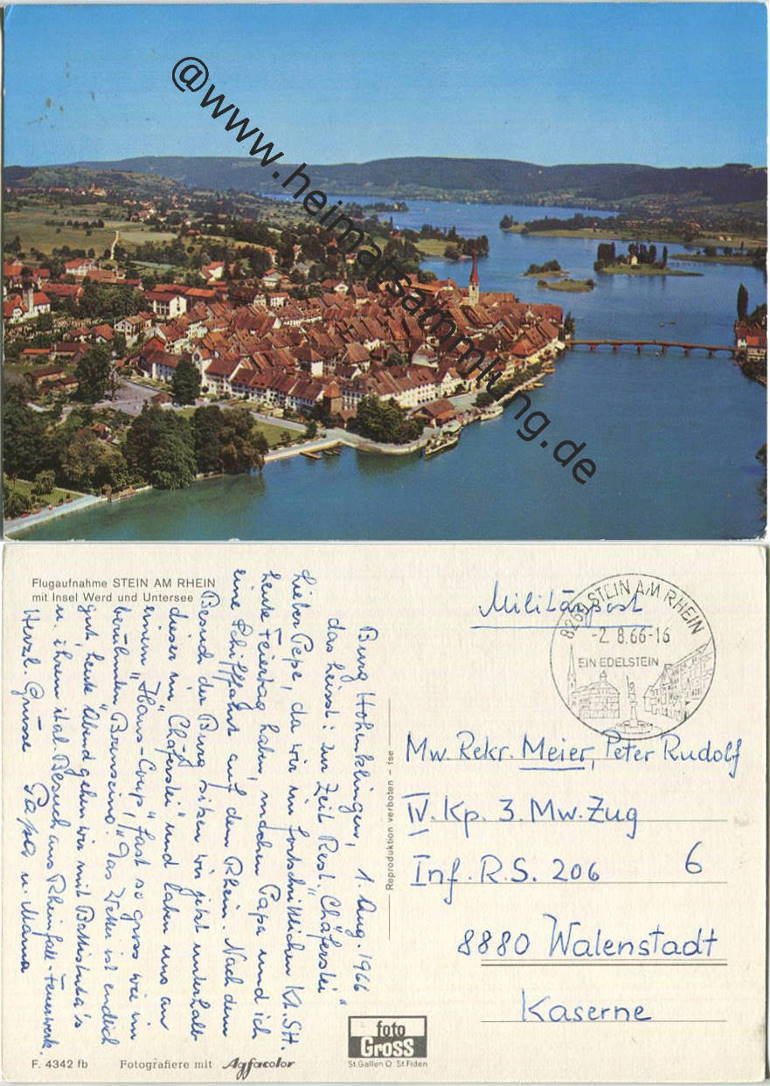 @www.heimatsammlung.de
Flugaufnahme STEIN AM RHEIN
mit Insel Werd und Untersee
Burg Hohenklingen, 1. Aug. 1966
das heisst: zur Zeit Rest. „Chäferstei"
Lieber Pepe, da wir im fortschrittlichen Kt. SH.
heute Feiertag haben, machen Papa und ich
eine Schiffahrt auf dem Rhein. Nach dem
Besuch der Burg sitzen wir jetzt unterhalb
dieser im „Chäferstei" und laben uns an
einem „Haus-Coup", fast so gross wie im
berühmten Bronseino. Das Wetter ist endlich
gut, heute Abend gehen wir mit Battistuta's
u. ihrem ital. Besuch ans Rheinfall-Feuerwerk.
Herzl. Grüsse Papa u. Mama
F. 4342 fb
Fotografiere mit Agfacolor
Reproduktion verboten – Ise
foto
Gross
St.Gallen O St.Fiden
Militärpost
8260 STEIN AM RHEIN
-2. 8.66-16
EIN EDELSTEIN
Mw. Rekr. Meier, Peter Rudolf
IV. Kp. 3. Mw. Zug
Inf. R.S. 206 6
8880 Walenstadt
Kaserne